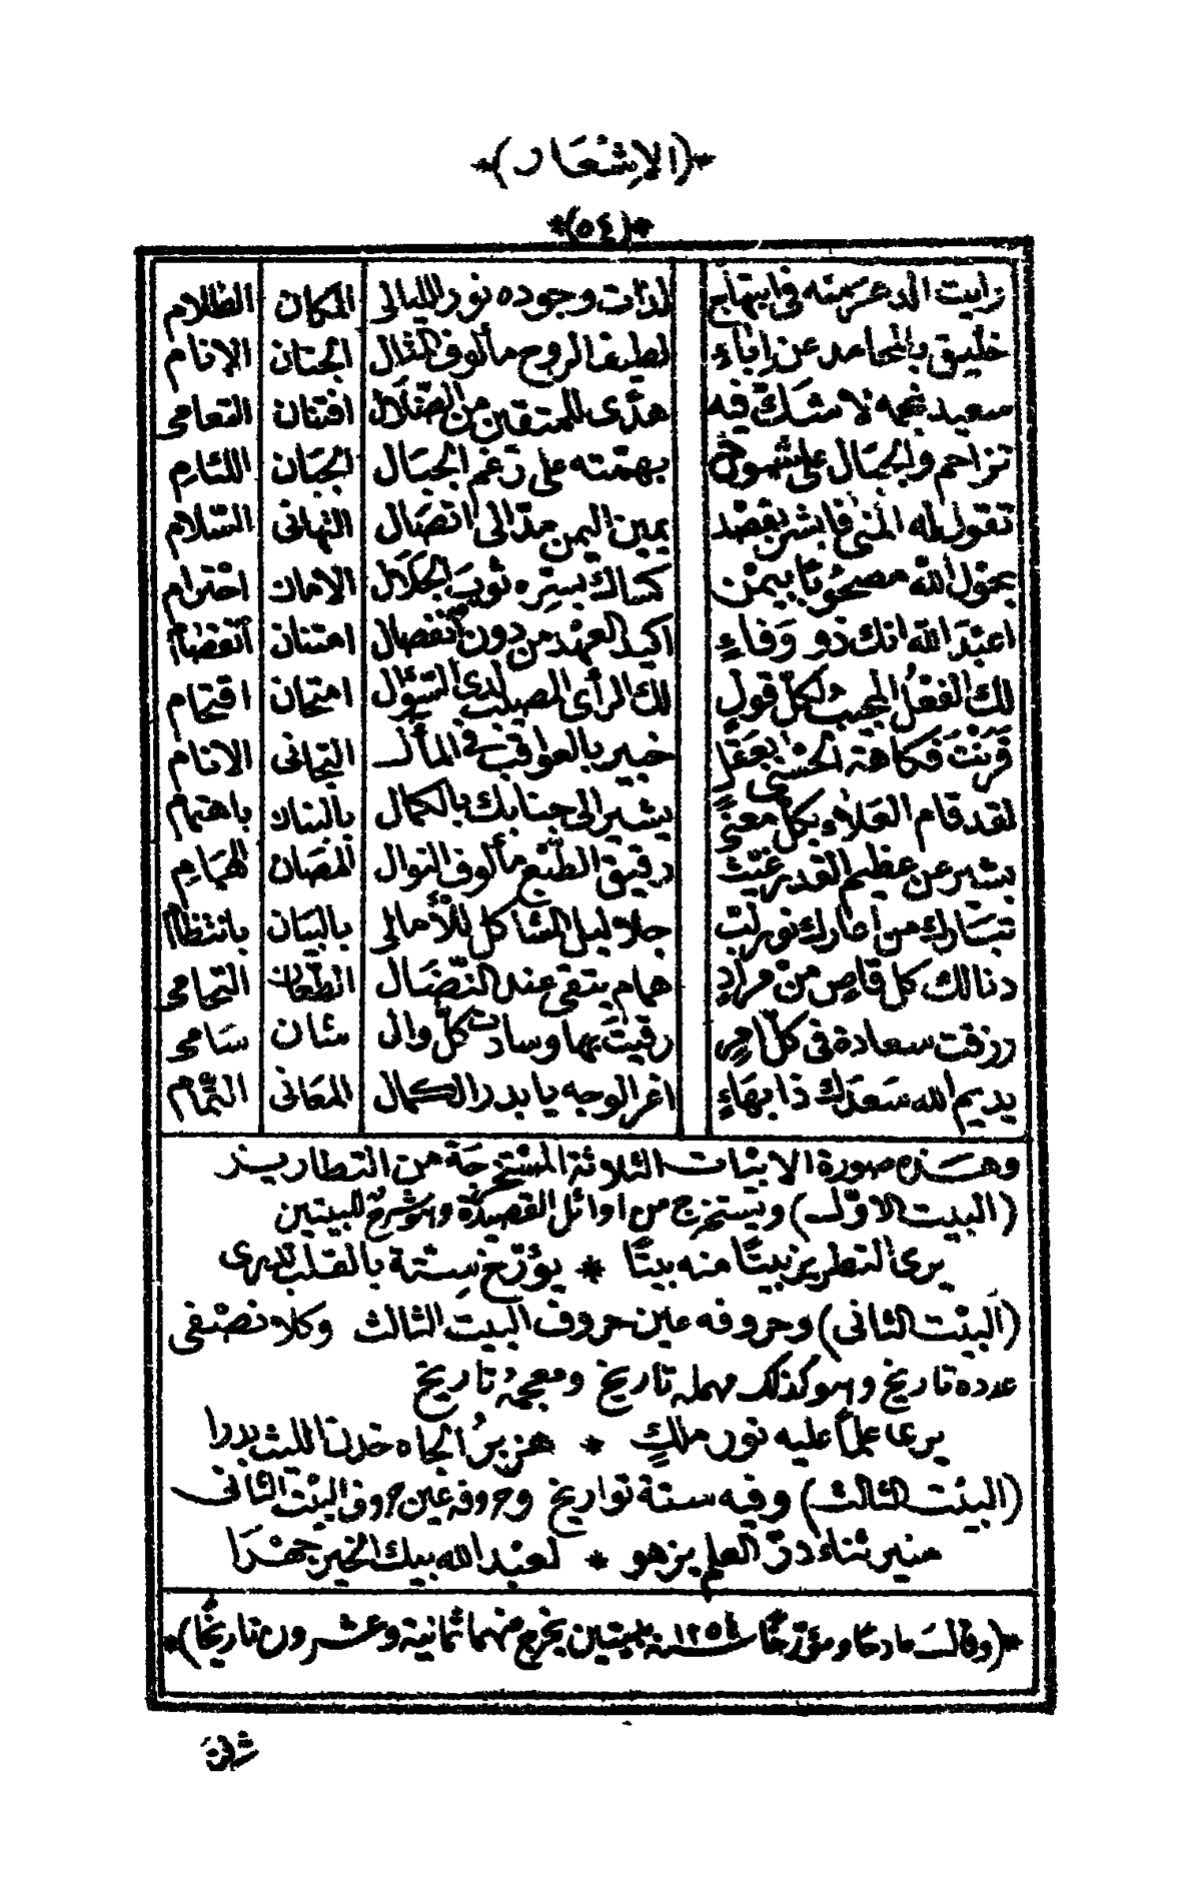 *(الإشعار)*
*(٥٤)*
رايت الدعر منه فى ابتهاج لذات وجوده نور الليالى المكان الظلام
خليق بالمحامد عن إباءٍ لطيف الروح مألوف المثال الجنان الانام
سعيد نجمه لا شكّ فيه هدًى للمتقين من الضّلال افتنان التعامى
تزاحم والجبال على شموخ بهمّته على رغم الجبال الجبان اللئام
تقول له المنى فابشر بقصد يمين اليمن مدّ الى اتصال التهانى السلام
بحول الله مصحُوبًا بيمن كساك بستره ثوبَ الجلال الامان احترام
اعبدَ الله انك ذو وَفاءٍ اكيد العهد من دون انفصال امتنان انفضام
لك الفعلُ المجيب لكلّ قولٍ لك الرأى المصيب لدى السّؤال امتحان اقتحام
قرنتَ فكاهة الحسنى بعَقلٍ خبير بالعواقب فى المآل التجانى الانام
لقد قام العلاء بكلّ معنًى يشير الى جنابك بالكمال بالبنان باهتمام
بشير عن عظيم القدر غيث رقيق الطّبع مألوف النوال المصان الهمام
تبارك من اعارك نور لبّ جلا ليل المشاكل للأمالى بالبيان بانتظام
دنا لك كل قاصٍ من مرادٍ همام يتقى عند النّضال الطّعان التحامى
رزقت سعادة فى كلّ امرٍ رقيتَ بها وسادت كلّ والى شان سامى
يديم الله سَعدَك ذا بهاءٍ اغر الوجه يا بدر الكمال المعانى التّمام
وهذه صورة الابيات الثلاثة المستخرجَة من التطاريز
(البيت الاوّل) ويستخرج من اوائل القصيدة وهو شرحٌ للبيتين
يرى التطريز بيتًا منه بيتًا * يؤرّخ ستة بالقلب تدرى
(البيت الثانى) وحروفه عين حروف البيت الثالث وكلا نصفى
عدده تاريخ وهو كذلك مهمله تاريخ ومعجمهُ تاريخ
يرى علمًا عليه نور ملكٍ * هزبرُ الجاه خدنا للث بدرا
(البيت الثالث) وفيه ستة تواريخ وحروفه عين حروف البيت الثانى
منير ثناء درّ العلم يزهو * لعبد الله بيك الخير جهرا
*(وقال مادحا ومؤرّخًا سنة ١٢٥٤ ببيتين يخرج منهما ثمانية وعشرون تاريخًا)*